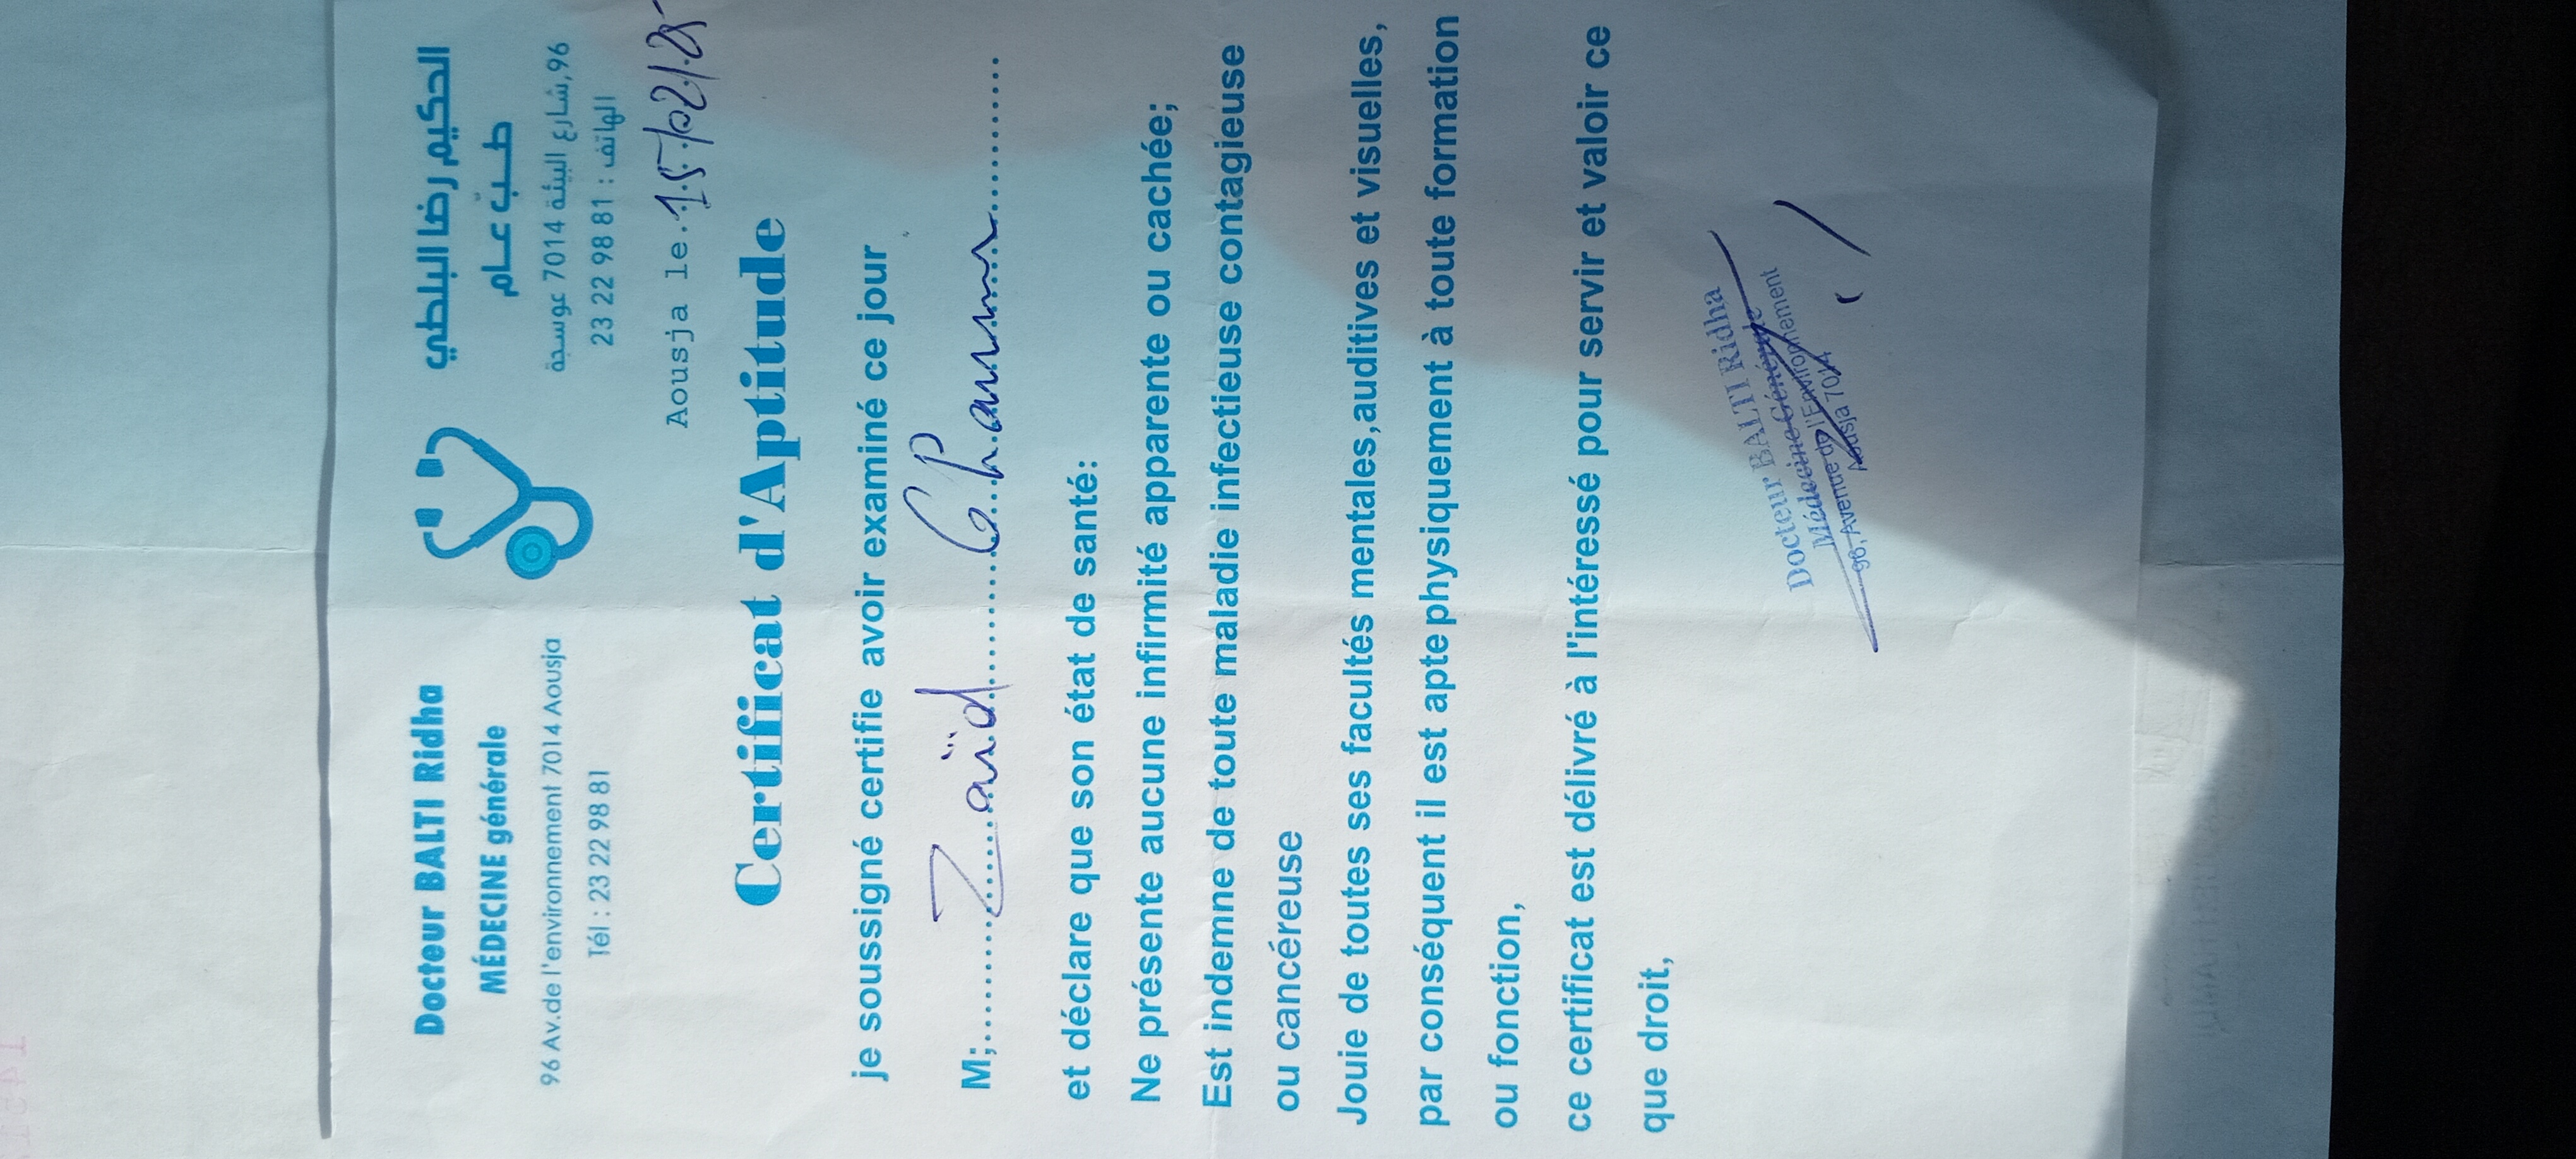 Docteur BALTI Ridha
MÉDECINE générale
96 Av.de l'environnement 7014 Aousja
Tél : 23 22 98 81
الحكيم رضا البلطي
طب عام
96,شارع البيئة 7014 عوسجة
الهاتف : 81 98 22 23
Aousja le.15/02/25
Certificat d'Aptitude
je soussigné certifie avoir examiné ce jour
M;......Zaïd......Ghannem......
et déclare que son état de santé:
Ne présente aucune infirmité apparente ou cachée;
Est indemne de toute maladie infectieuse contagieuse
ou cancéreuse
Jouie de toutes ses facultés mentales,auditives et visuelles,
par conséquent il est apte physiquement à toute formation
ou fonction,
ce certificat est délivré à l'intéressé pour servir et valoir ce
que droit,
Docteur BALTI Ridha
Médecine Générale
96, Avenue de l'Environnement
Aousja 7014